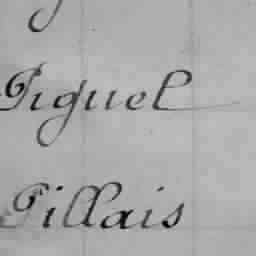 Piguel
Pillais